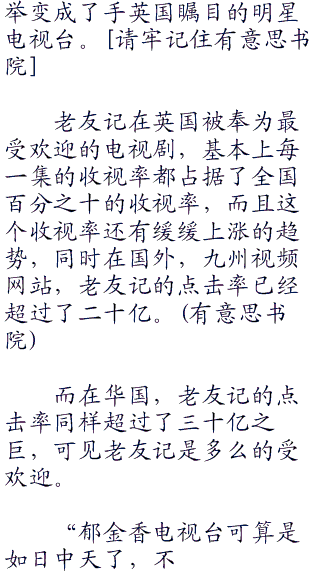 举变成了手英国瞩目的明星
电视台。［请牢记住有意思书
院］
老友记在英国被奉为最
受欢迎的电视剧，基本上每
一集的收视率都占据了全国
百分之十的收视率，而且这
个收视率还有缓缓上涨的趋
势，同时在国外，九州视频
网站，老友记的点击率已经
超过了二十亿。（有意思书
院）
而在华国，老友记的点
击率同样超过了三十亿之
巨，可见老友记是多么的受
欢迎。
“郁金香电视台可算是
如日中天了，不